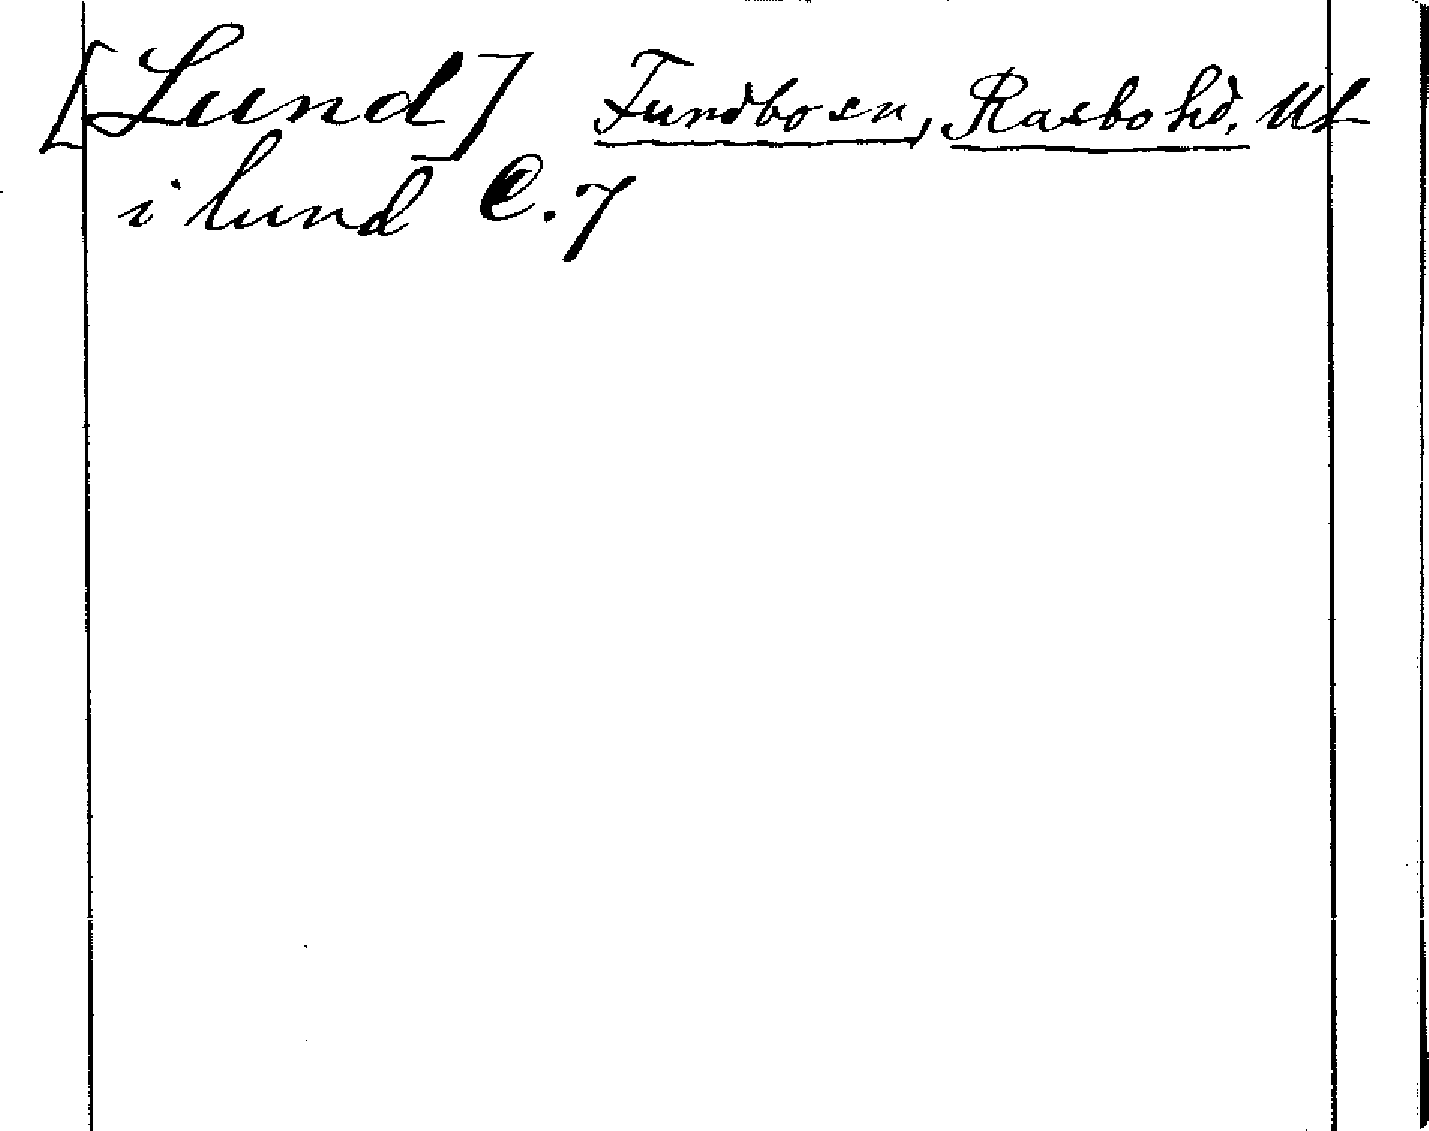 [Lund] Funbo sn, Rasbo hd. Ul
i lund C. 7